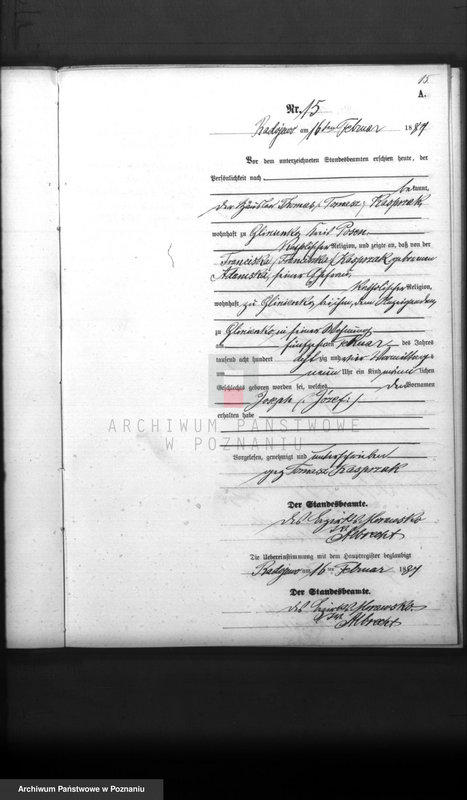 15.
A.
Nr. 15
Radojewo am 16ten Februar 1887
Vor dem unterzeichneten Standesbeamten erschien heute, der
Persönlichkeit nach
bekannt,
der Häusler Thomas (Tomasz) Kasprzak
wohnhaft zu Glinienko Kreis Posen
katholischer Religion, und zeigte an, daß von der
Franciska (Franciszka) Kasprzak geborenen
Adamska, seiner Ehefrau,
katholischer Religion,
wohnhaft zu Glinienko bei ihm, dem Anzeigenden,
zu Glinienko in seiner Wohnung
am fünfzehn Februar des Jahres
tausend acht hundert achtzig und Vormittags
um neun Uhr ein Kind männlichen
Geschlechts geboren worden sei, welches den Vornamen
Joseph (Józef)
erhalten habe
ARCHIWUM PAŃSTWOWE
W POZNANIU
Vorgelesen, genehmigt und unterschrieben
gez Tomasz Kasprzak
Der Standesbeamte.
des Bezirks Morasko
Albrecht
Die Uebereinstimmung mit dem Hauptregister beglaubigt
Radojewo am 16ten Februar 1887
Der Standesbeamte.
des Bezirks Morasko.
Albrecht
Archiwum Państwowe w Poznaniu